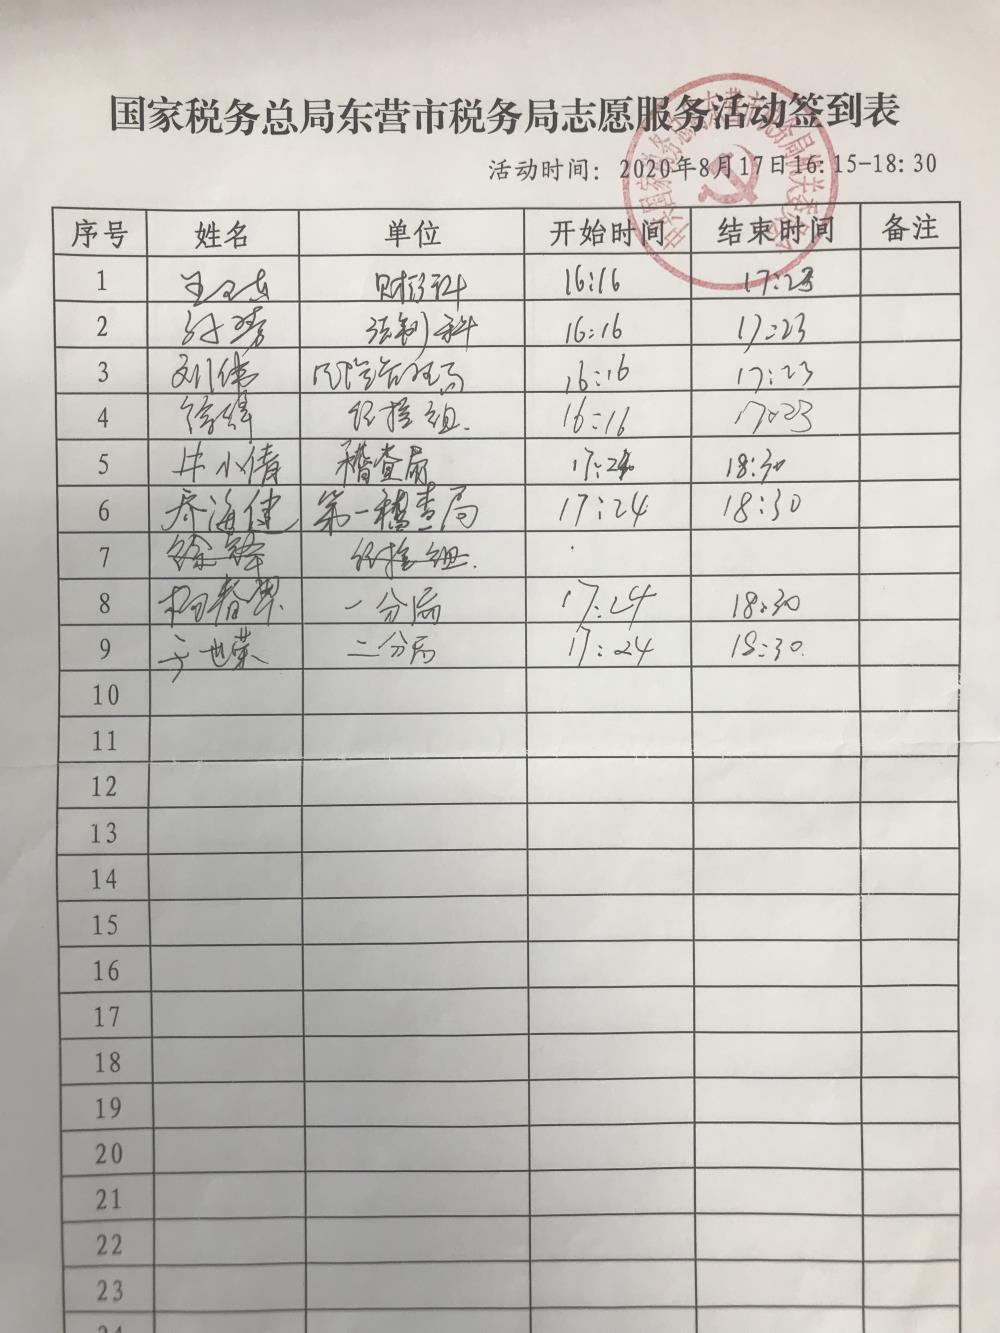 国家税务总局东营市税务局志愿服务活动签到表
活动时间: 2020年8月17日16:15-18:30
序号 姓名 单位 开始时间 结束时间 备注
1 财行科 16:16 17:23
2 法制科 16:16 17:23
3 刘伟 风险管理局 16:16 17:23
4 纪检组. 16:16 17:23
5 井小倩 稽查局 17:24 18:30
6 乔海健 第一稽查局 17:24 18:30
7 纪检组.
8 一分局 17:24 18:30
9 于世荣 二分局 17:24 18:30
10
11
12
13
14
15
16
17
18
19
20
21
22
23
24